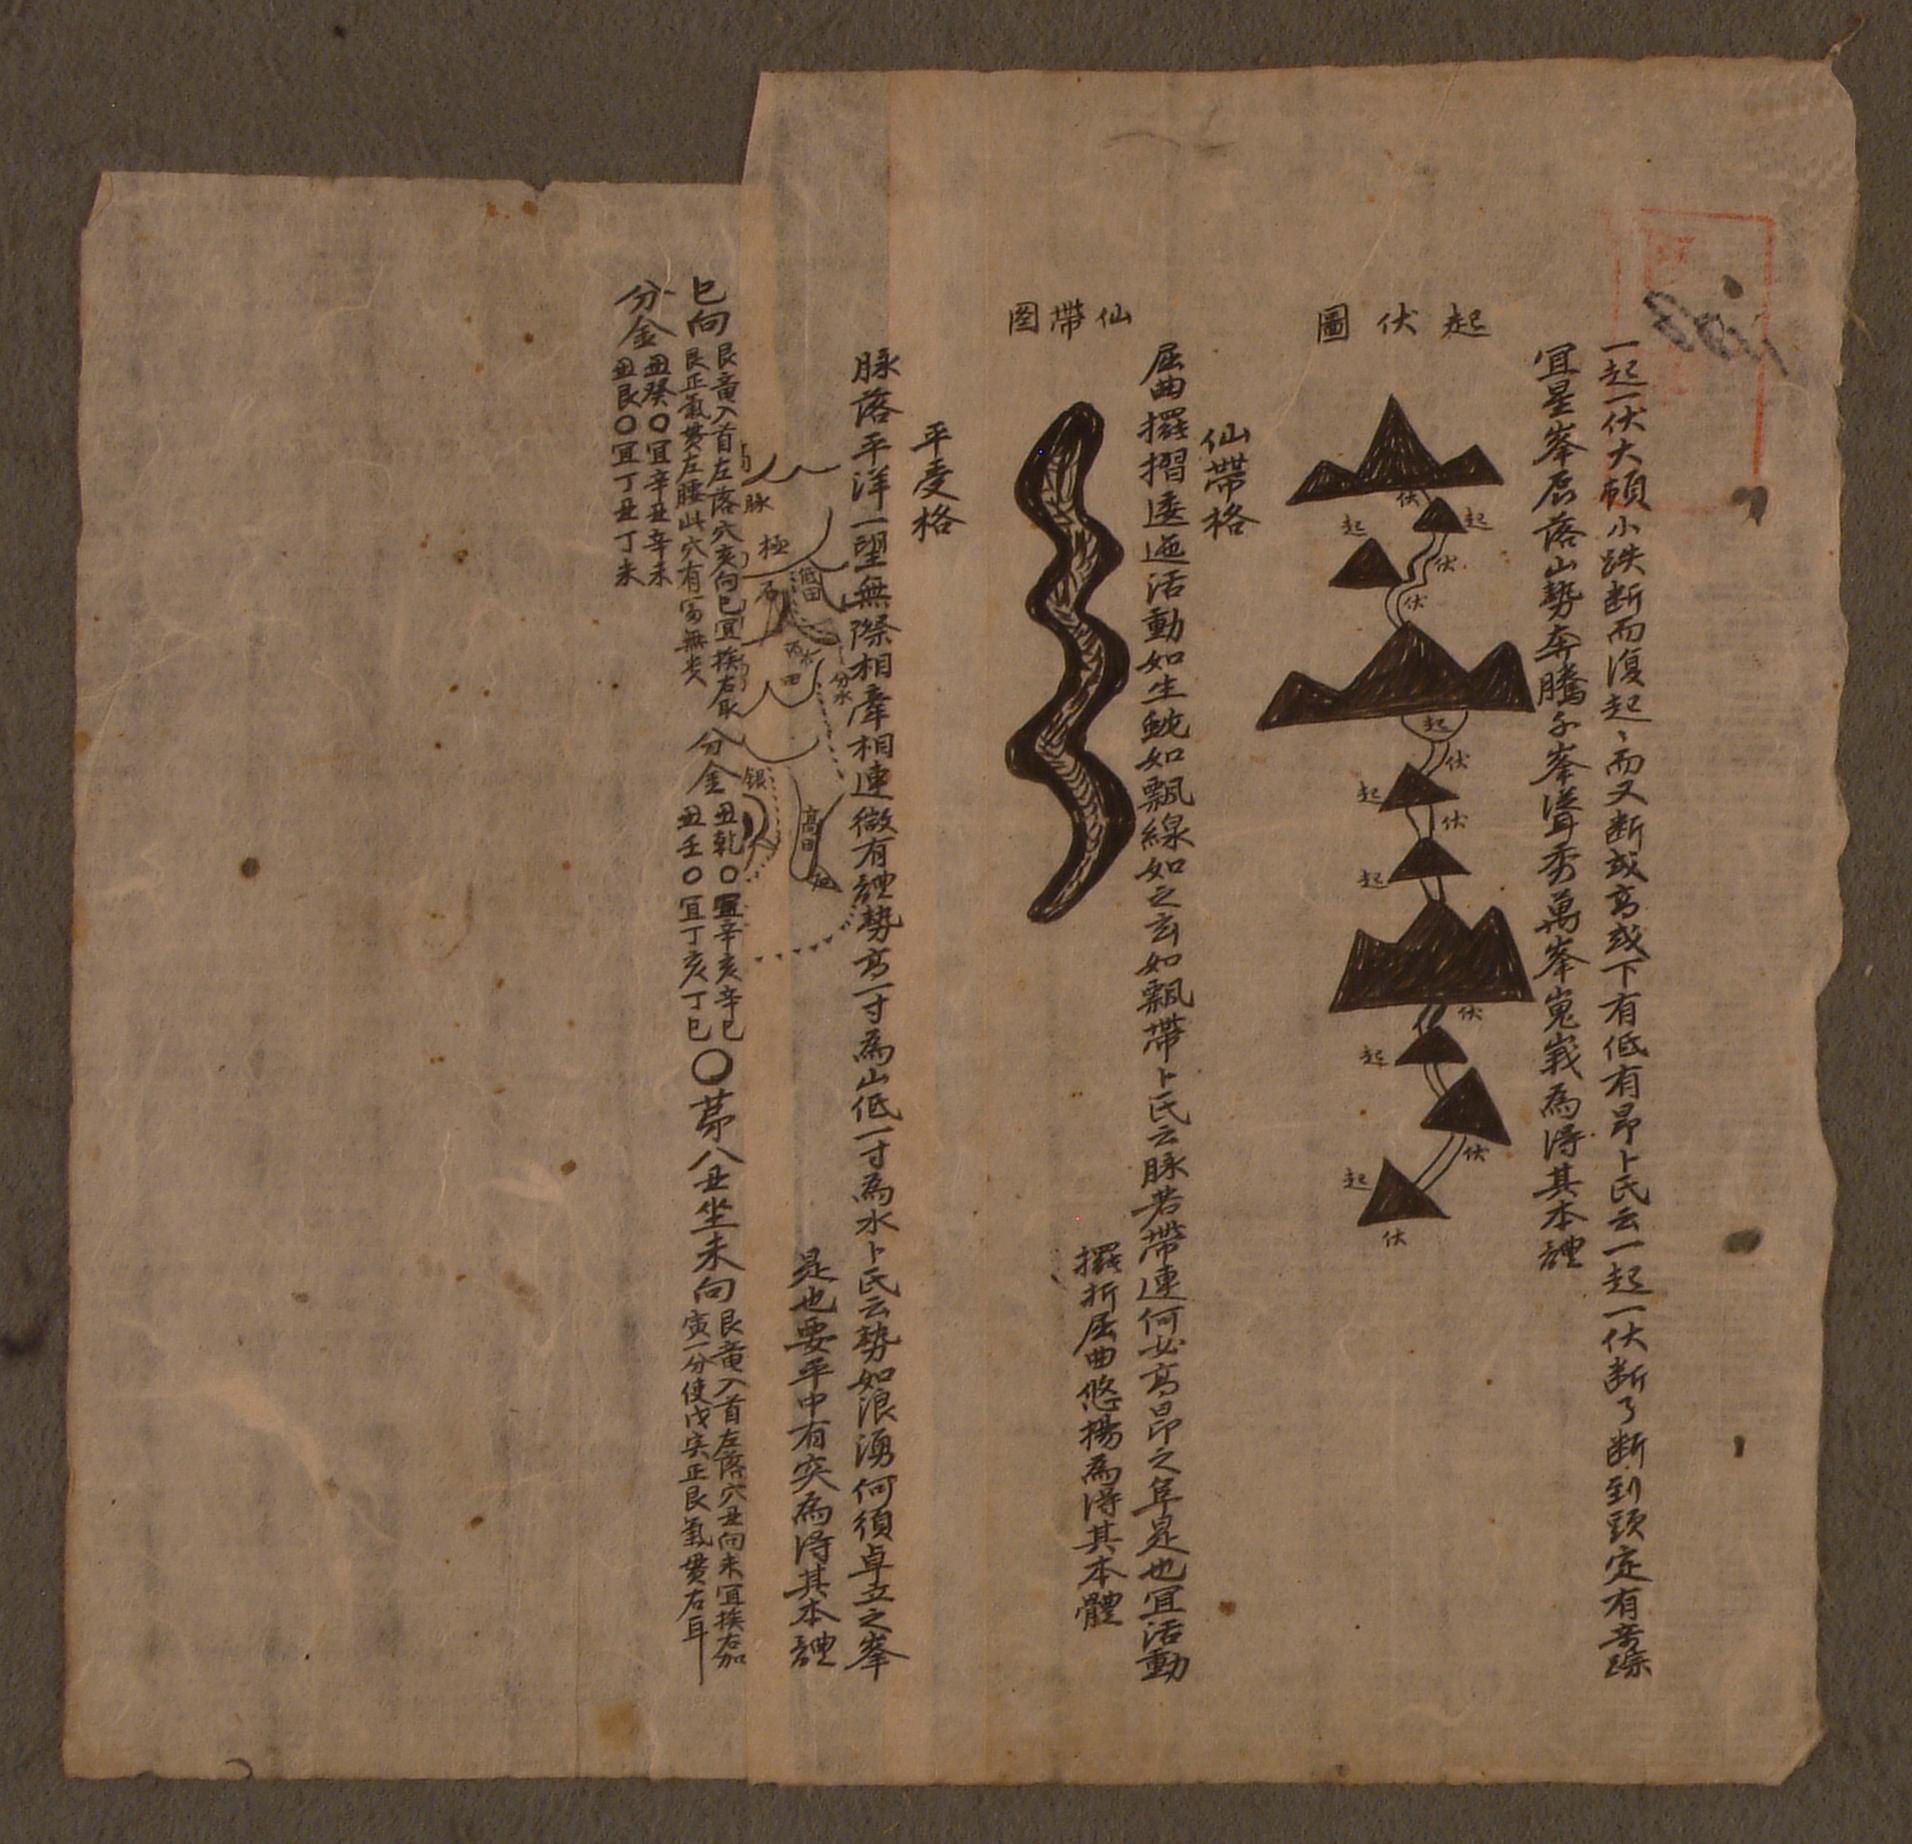 一起一伏大頓小跌断而復起〻而又断或高或下有低有昂卜氏云一起一伏断了断到頭定有奇踪
宜星峯辰落山勢奔騰千峯聳秀萬峯嵬峩為得其本體
起伏圖
伏
起
起
伏
伏
起
伏
起
伏
起
伏
起
伏
起
伏
仙帶格
屈曲擺摺逶迤活動如生蛇如飄線如之玄如飄帶卜氏云脉若帶連何必高昂之阜是也宜活動
擺折屈曲悠揚為得其本體
仙帶图
平受格
脉落平洋一望無際相牽相連微有體勢高一寸為山低一寸為水卜氏云勢如浪湧何須卓立之峯
是也要平中有突為得其本體
脉
極
石
低田
分水
田
高田
银
巳向
艮竜入首左落穴亥向巳宜挨右取
艮正氣貫左腰此穴有
無
分金
丑乾〇宜辛亥辛巳
丑壬〇宜丁亥丁巳
〇苐八丑坐未向
艮竜入首左落穴丑向未宜挨右加
寅一分使戊寅正艮氣貫右耳
分金
丑癸〇宜辛丑辛未
丑艮〇宜丁丑丁未